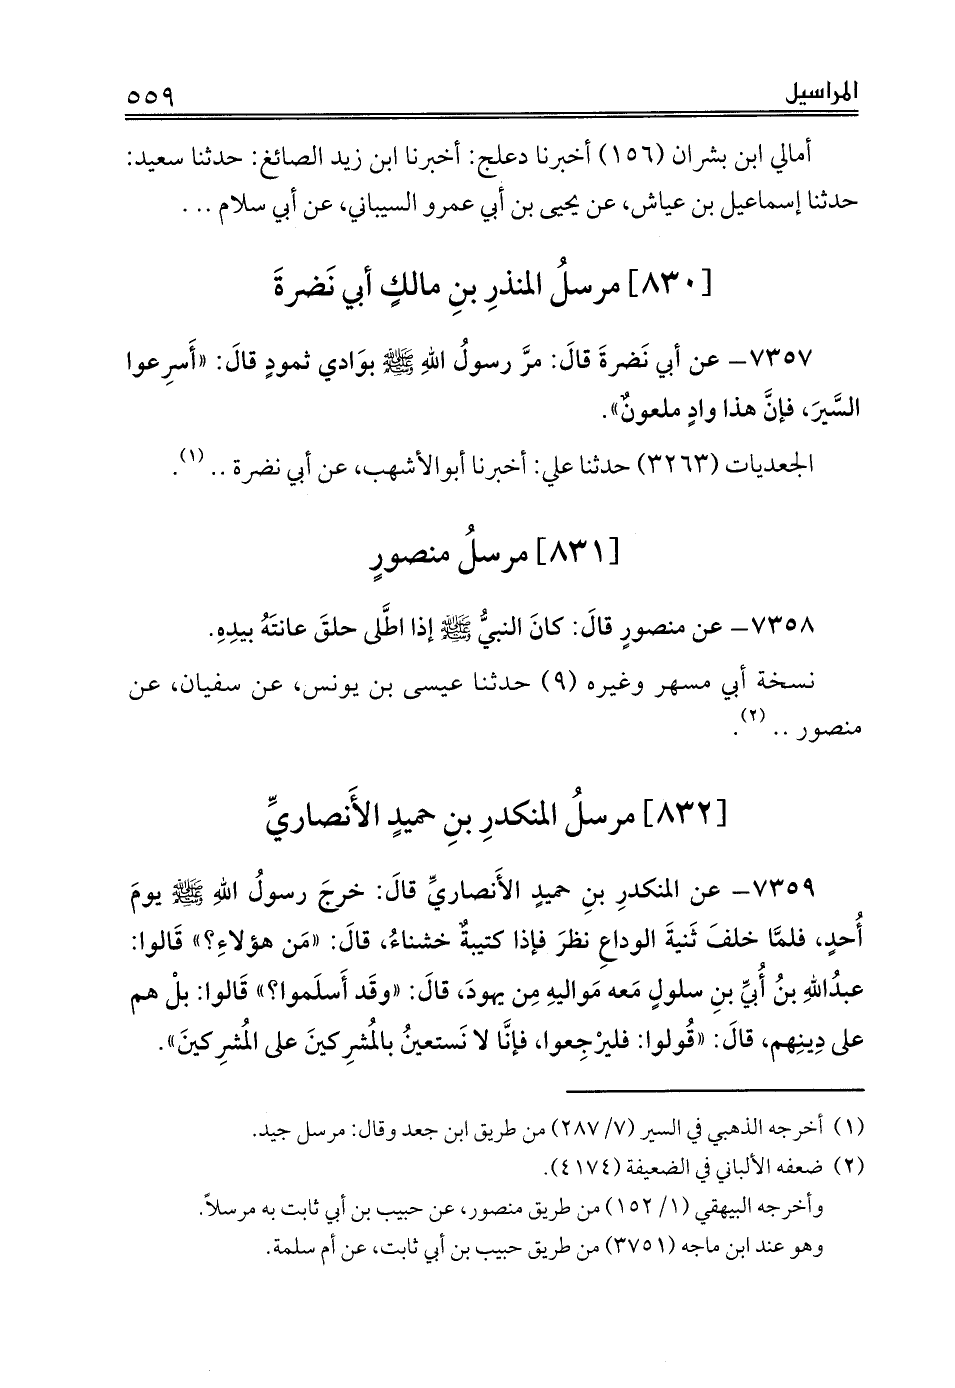 المراسيل ٥٥٩
أمالي ابن بشران (١٥٦) أخبرنا دعلج: أخبرنا ابن زيد الصائغ: حدثنا سعيد:
حدثنا إسماعيل بن عياش، عن يحيى بن أبي عمرو السيباني، عن أبي سلام ...
[٨٣٠] مرسلُ المنذرِ بنِ مالكٍ أبي نَضرةَ
٧٣٥٧– عن أبي نَضرةَ قالَ: مرَّ رسولُ اللهِ ﷺ بوَادي ثمودٍ قالَ: «أَسرِعوا
السَّيرَ، فإنَّ هذا وادٍ ملعونٌ».
الجعديات (٣٢٦٣) حدثنا علي: أخبرنا أبوالأشهب، عن أبي نضرة ..(١).
[٨٣١] مرسلُ منصورٍ
٧٣٥٨– عن منصورٍ قالَ: كانَ النبيُّ ﷺ إذا اطَّلى حلقَ عانتَهُ بيدِهِ.
نسخة أبي مسهر وغيره (٩) حدثنا عيسى بن يونس، عن سفيان، عن
منصور ..(٢).
[٨٣٢] مرسلُ المنكدرِ بنِ حميدٍ الأَنصاريِّ
٧٣٥٩– عن المنكدرِ بنِ حميدٍ الأَنصاريِّ قالَ: خرجَ رسولُ اللهِ ﷺ يومَ
أُحدٍ، فلمَّا خلفَ ثَنيةَ الوداعِ نظرَ فإذا كتيبةٌ خشناءُ، قالَ: «مَن هؤلاءِ؟» قَالوا:
عبدُاللهِ بنُ أُبيِّ بنِ سلولٍ مَعه مَواليهِ مِن يهودَ، قالَ: «وقَد أَسلَموا؟» قَالوا: بلْ هم
على دِينِهم، قالَ: «قُولوا: فليرْجِعوا، فإنَّا لا نَستعينُ بالمُشرِكينَ على المُشرِكينَ».
(١) أخرجه الذهبي في السير (٧/ ٢٨٧) من طريق ابن جعد وقال: مرسل جيد.
(٢) ضعفه الألباني في الضعيفة (٤١٧٤).
وأخرجه البيهقي (١/ ١٥٢) من طريق منصور، عن حبيب بن أبي ثابت به مرسلاً.
وهو عند ابن ماجه (٣٧٥١) من طريق حبيب بن أبي ثابت، عن أم سلمة.